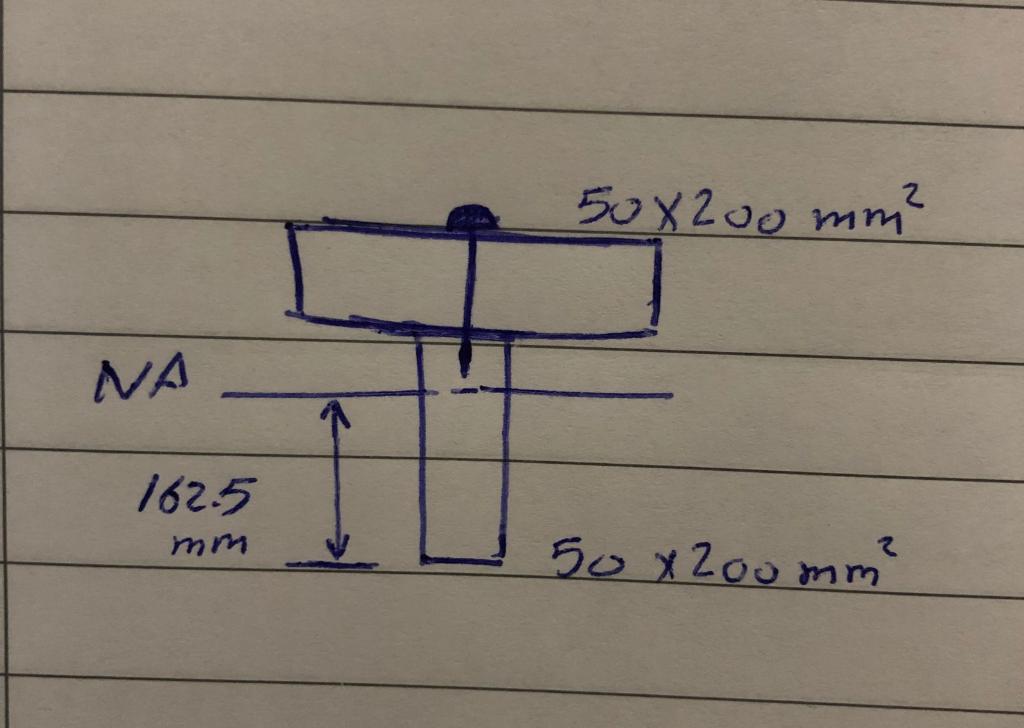 50X200 mm²
NA
162.5
mm
50 x200mm²